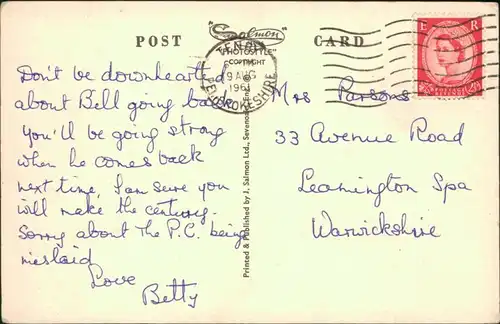 POST
"Salmon"
"PHOTOSTYLE"
COPYRIGHT
CARD
E R
9 AUG
196
PEMBROKESHIRE
POSTAGE
2½D
2½D
Don't be downhearted
about Bell going back
you'll be going strong
when he comes back
next time, I am sure you
will make the century.
Sorry about the P.C. being
mislaid
Love
Betty
Printed & Published by J. Salmon Ltd., Sevenoaks
Mrs Parsons
33 Avenue Road
Leamington Spa
Warwickshire